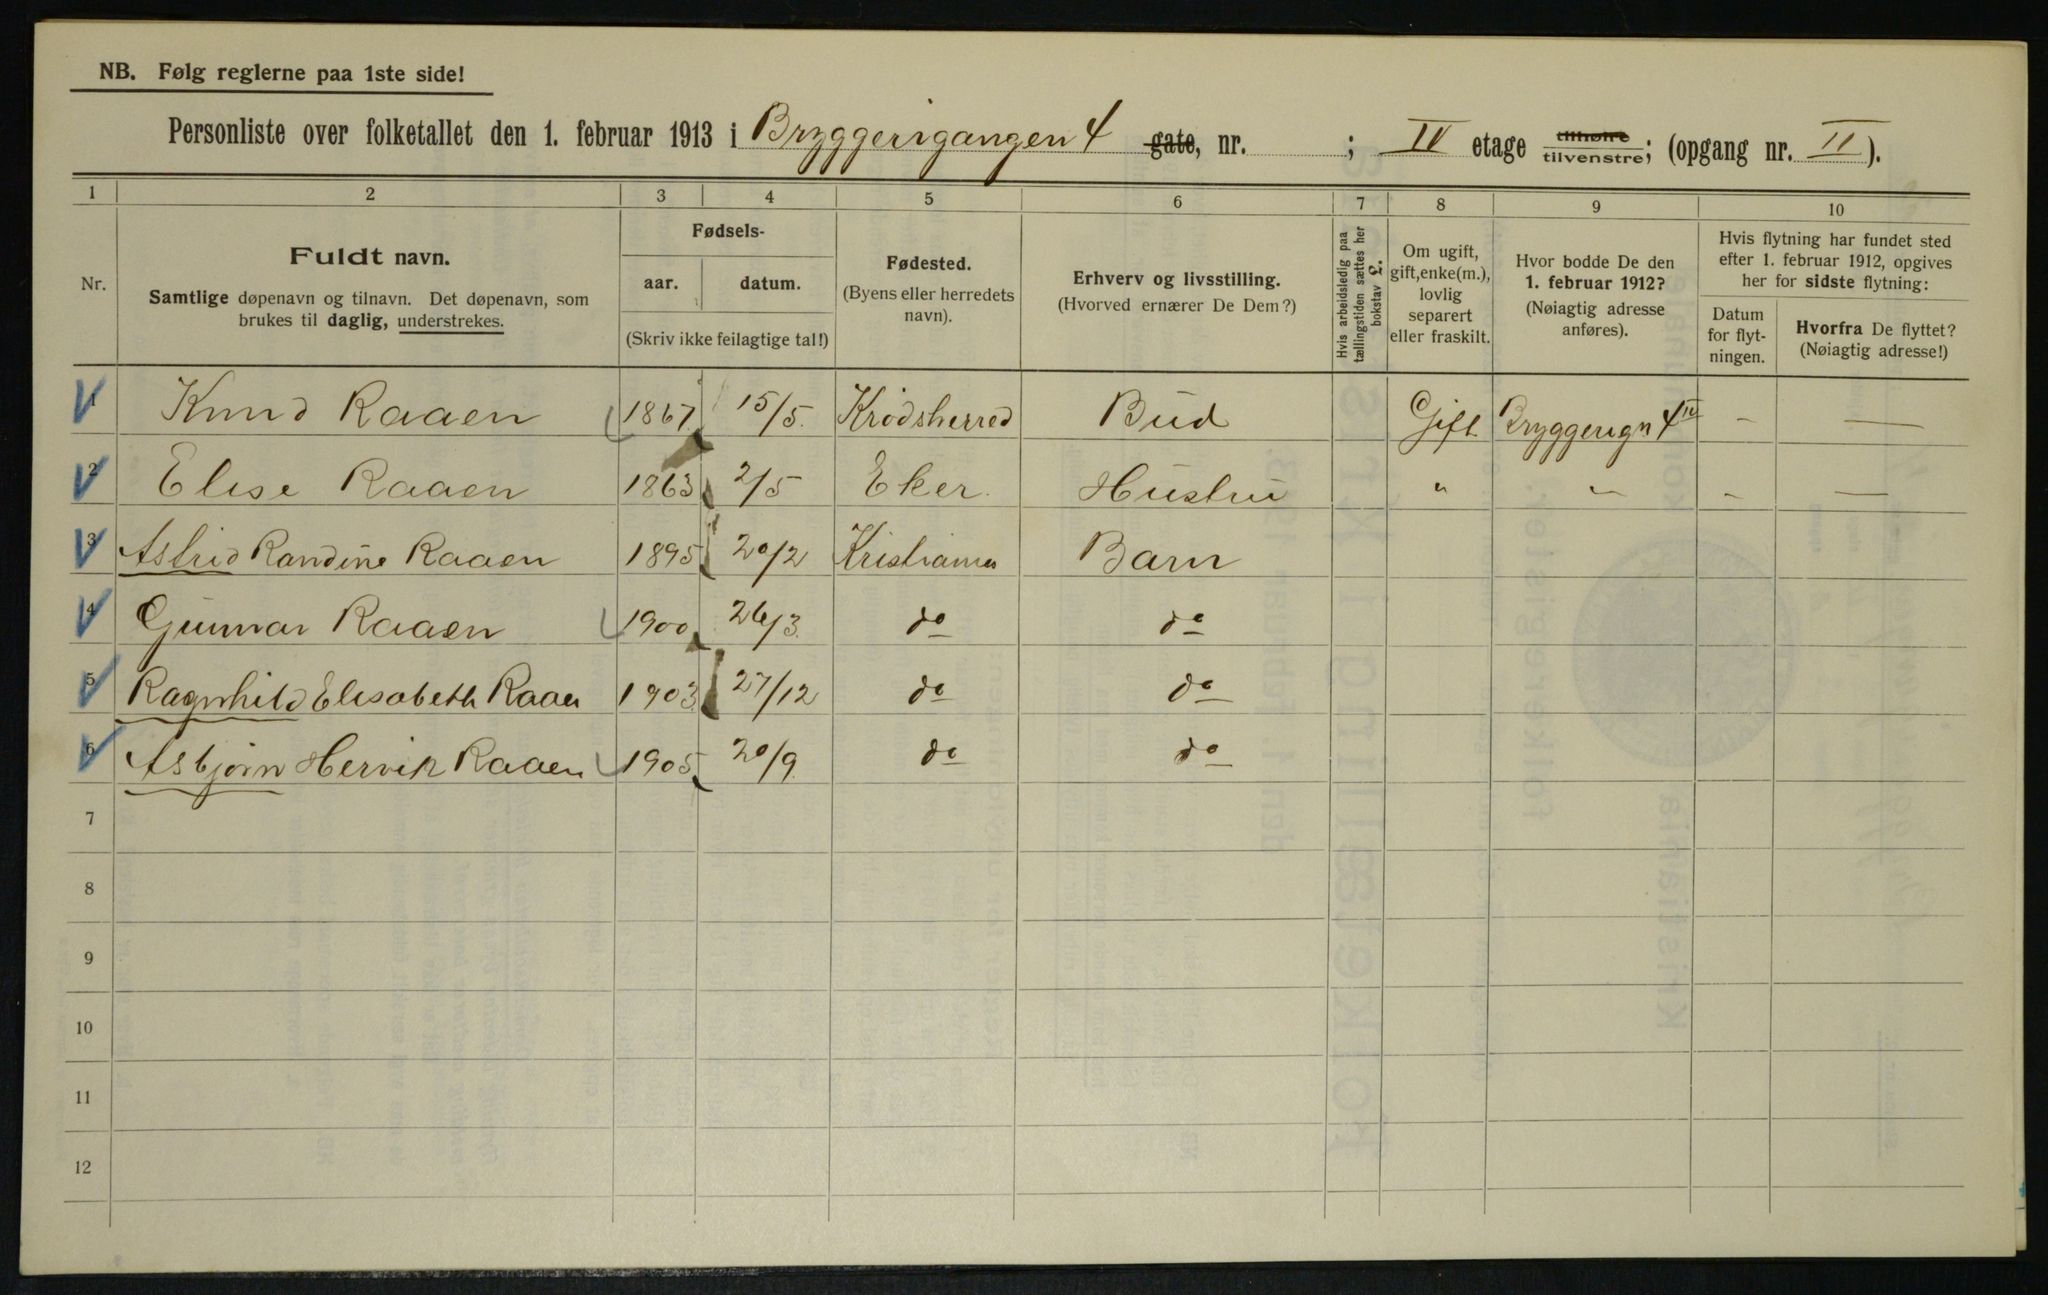 NB. Følg reglerne paa 1ste side!
Personliste over folketallet den 1. februar 1913 i Bryggerigangen 4 gate, nr. ; IV etage tilhøire tilvenstre; (opgang nr. II).
1 2 3 4 5 6 7 8 9 10
Nr.
Fuldt navn.
Samtlige døpenavn og tilnavn. Det døpenavn, som
brukes til daglig, understrekes.
Fødsels-
aar. datum.
(Skriv ikke feilagtige tal!)
Fødested.
(Byens eller herredets
navn).
Erhverv og livsstilling.
(Hvorved ernærer De Dem?)
Hvis arbeidsledig paa
tællingstiden sættes her
bokstav L.
Om ugift,
gift, enke(m.),
lovlig
separert
eller fraskilt.
Hvor bodde De den
1. februar 1912?
(Nøiagtig adresse
anføres).
Hvis flytning har fundet sted
efter 1. februar 1912, opgives
her for sidste flytning:
Datum
for flyt-
ningen.
Hvorfra De flyttet?
(Nøiagtig adresse!)
1 Knud Raaen 1867 15/5. Krødsherred Bud Gift Bryggerign 4 IV - —
2 Elise Raaen 1863 2/5 Eker. Hustru " " - —
3 Astrid Randine Raaen 1895 20/2 Kristiania Barn
4 Gunnar Raaen 1900 26/3. do do
5 Ragnhild Elisabeth Raaen 1903 27/12 do do
6 Asbjørn Henrik Raaen 1905 20/9 do do
7
8
9
10
11
12